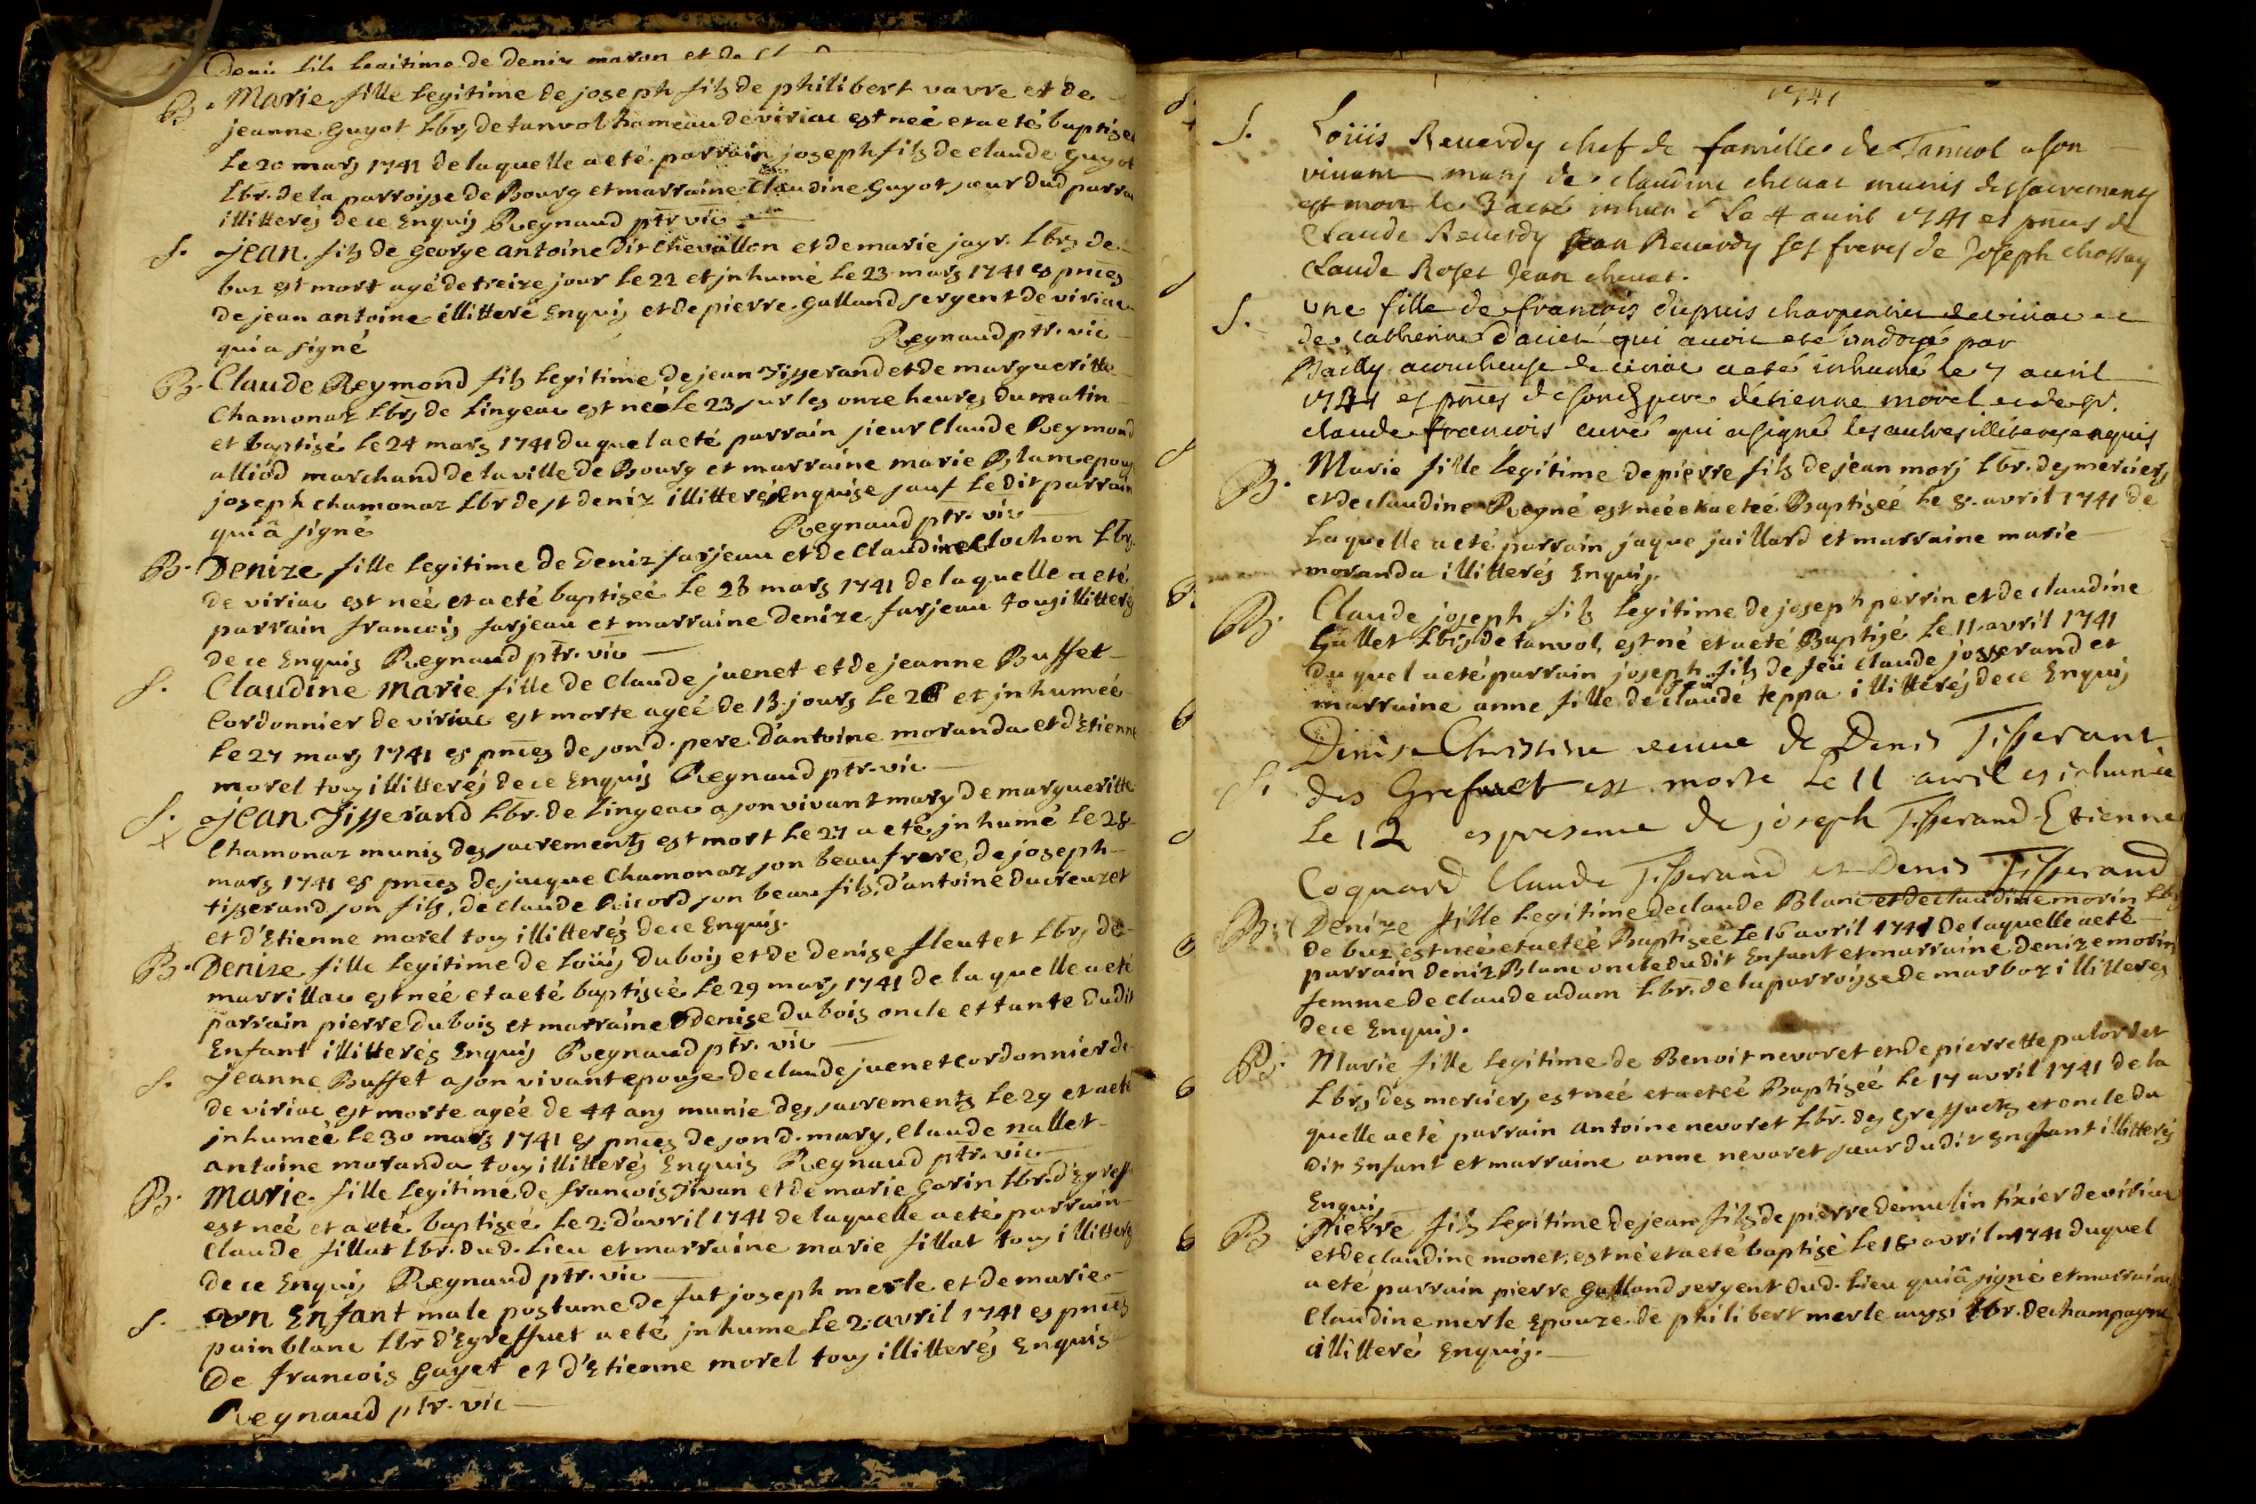 Denis fils legitime de Deniz maron et de
B. Marie fille legitime de joseph fils de philibert vavre et de
jeanne Guyot Lbrs de tanvol hameau de viriac est neé et a eté baptiseé
Le 20 mars 1741 de laquelle a eté parrain joseph fils de claude Guyot
Lbr. de la parroisse de Bourg et marraine Claudine Guyot sœur dud parra
illitterés de ce Enquis Regnaud ptr. vic
S. jean fils de George antoine dit chevallon et de marie jayr. Lbrs de
buz est mort agé de treize jour le 22 et jnhumé le 23 mars 1741 es pnces
de jean antoine illitteré Enquis et de pierre Galland sergent de viriac
qui a signé Regnaud ptr. vic
B. Claude Reymond fils legitime de jean Tisserand et de margueritte
Chamonaz Lbrs de Lingeac est né le 23 sur les onze heures du matin
et baptisé le 24 mars 1741 du quel a eté parrain sieur Claude Reymond
alliod marchand de la ville de Bourg et marraine marie Blanc epouse
joseph chamonaz Lbr de st deniz illitterés Enquise sauf le dit parrain
qui â signé Regnaud ptr. vic
B. Denize fille legitime de Deniz farjeau et de Claudine Clochon Lbrs.
de viriac est neé et a eté baptiseé le 23 mars 1741 de laquelle a eté
parrain francois farjeau et marraine Denize farjeau tous illitterés
de ce Enquis Regnaud ptr. vic
S. Claudine Marie fille de Claude juenet et de jeanne Buffet
Cordonnier de viriac est morte ageé de 13 jours le 26 et jnhumeé
le 27 mars 1741 es pnces de son d. pere d'antoine moranda et d'Etienne
morel tous illitterés de ce Enquis Regnaud ptr. vic
S. jean Tisserand Lbr. de Lingeac a son vivant mary de margueritte
Chamonaz munis des sacrements est mort le 27 a eté jnhumé le 28
mars 1741 es pnces de jacque Chamonaz son beau frere, de joseph
tisserand son fils, de claude Ricord son beau fils, d'antoine Ducreuzet
et d'Etienne morel tous illitterés de ce Enquis.
B. Denize fille legitime de Loüis Dubois et de Denise fleutet Lbrs de
marrillac est neé et a eté baptiseé le 29 mars 1741 de la quelle a eté
parrain pierre dubois et marraine Denise dubois oncle et tante dudit
Enfant illitterés Enquis Regnaud ptr. vic
S. Jeanne Buffet a son vivant epouse de claude juenet cordonnier de
de viriac est morte ageé de 44 ans munie des sacrements le 29 et a eté
jnhumeé le 30 mars 1741 es pnces de son d. mary, Claude nallet
antoine moranda tous illitterés Enquis Regnaud ptr. vic
B. Marie fille legitime de francois Tivan et de marie Garin Lbr. d'Egreff
est neé et a eté baptiseé le 2. d'avril 1741 de laquelle a eté parrain
Claude fillat Lbr. du d. Lieu et marraine marie fillat tous illitterés
de ce Enquis Regnaud ptr. vic
S. un Enfant male postume de fut joseph merle et de marie
pain blanc Lbr d'Egreffuet a eté jnhume le 2 avril 1741 es pnces
De francois Gayet et d'Etienne morel tous illitterés Enquis
Regnaud ptr. vic
1741
S. Loüis Reverdy chef de famille de Tanvol a son
vivant mary de claudine chevat munis des sacrements
est mort le 3 a eté inhumé le 4 avril 1741 es pnces de
Claude Reverdy Jean Reverdy ses freres de Joseph chossay
Claude Roset Jean chevat.
S. une fille de francois dupuis charpentier de viriac et
de catherine d'acier qui avoit eté ondoyé par
Bailly acoucheuse de viriac a eté inhumé le 7 avril
1741 es pnces de son d. pere d'étienne morel et de sr.
claude francois curé qui a signé les autres illiteres enquis
B. Marie fille legitime de pierre fils de jean morj Lbr. des merciers
et de claudine Rogné est neé et a eteé Baptiseé le 8. avril 1741 de
Laquelle a eté parrain jaque jaillard et marraine marie
moranda illitterés Enquis.
B. Claude joseph fils legitime de joseph perrin et de claudine
Gallet Lbrs de tanvol, est né et a eté Baptisé le 11 avril 1741
du quel a eté parrain joseph fils de feü claude josserand et
marraine anne fille de feu claude teppa illitterés de ce Enquis
S. Denise Christine veuve de Denis Tisserant
des Grefuet est morte le 11 avril et inhumée
le 12 es presence de joseph Tisserand Etienne
Coquard Claude Tisserand et Denis Tisserand
B. Denize fille legitime de claude Blanc et de claudine morin Lbrs
de buz est neé et a eteé Baptiseé le 16 avril 1741 de laquelle a eté
parrain deniz Blanc oncle du dit Enfant et marraine denize morin
femme de claude adam Lbr. de la parroisse de marboz illitterés
de ce Enquis.
B. Marie fille legitime de Benoit nevoret et de pierrette palordet
Lbrs des merciers est neé et a eteé Baptiseé le 17 avril 1741 de la
quelle a eté parrain antoine nevoret Lbr. des Greffuets et oncle du
dit Enfant et marraine anne nevoret sœur dudit Enfant illitterés
Enquis
B. Pierre fils legitime de jean fils de pierre demulin tixier de viriac
et de claudine monet, est né et a eté baptisé le 18 avril 1741 duquel
a eté parrain pierre Galland sergent dud. Lieu qui â signé et marraine
Claudine merle Epouze de philibert merle aussi Lbr. de champagne
illitteré Enquis.